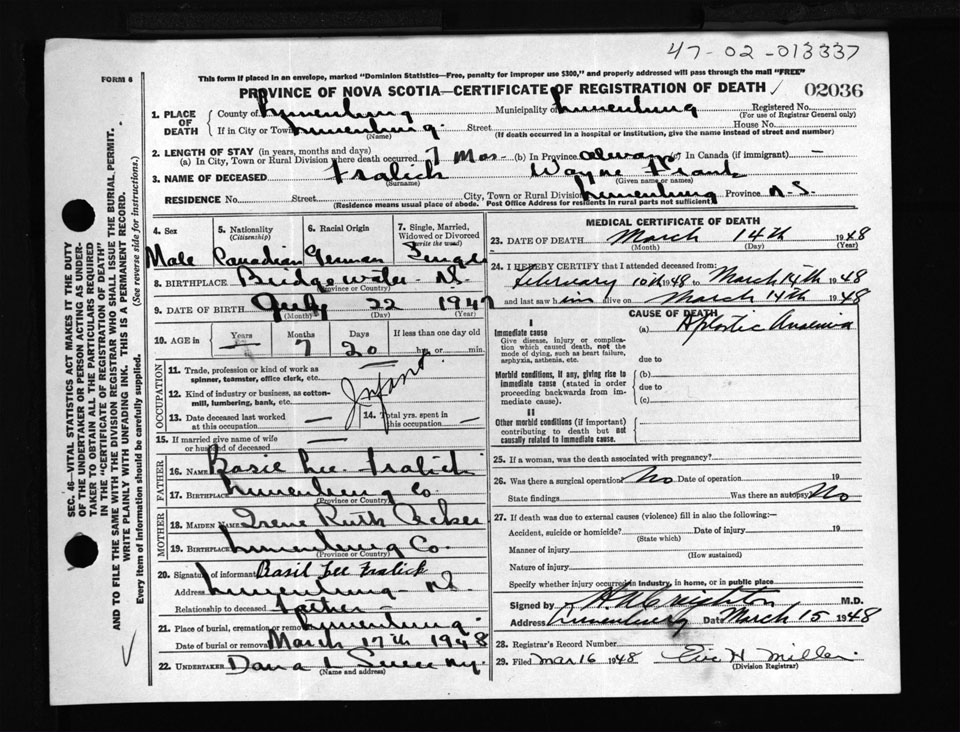 47-02-013337
FORM 6
This form if placed in an envelope, marked "Dominion Statistics—Free, penalty for improper use $300," and properly addressed will pass through the mail "FREE"
PROVINCE OF NOVA SCOTIA—CERTIFICATE OF REGISTRATION OF DEATH 02036
1. PLACE OF DEATH
County of Lunenburg Municipality of Lunenburg Registered No.
(For use of Registrar General only)
If in City or Town Lunenburg. Street House No.
(Name) (If death occurred in a hospital or institution, give the name instead of street and number)
2. LENGTH OF STAY (in years, months and days)
(a) In City, Town or Rural Division where death occurred 7 Mos. (b) In Province always (c) In Canada (if immigrant) —
3. NAME OF DECEASED Fralick Wayne Frank
(Surname) (Given name or names)
RESIDENCE No. Street City, Town or Rural Division Lunenburg Province N.S.
(Residence means usual place of abode. Post Office Address for residents in rural parts not sufficient)
4. Sex 5. Nationality (Citizenship) 6. Racial Origin 7. Single, Married, Widowed or Divorced (write the word)
Male Canadian German Single
8. BIRTHPLACE Bridgewater N.S.
(Province or Country)
9. DATE OF BIRTH July 22 1947
(Month) (Day) (Year)
10. AGE in Years Months Days If less than one day old
— 7 20 hrs. or min.
OCCUPATION
11. Trade, profession or kind of work as spinner, teamster, office clerk, etc. —
12. Kind of industry or business, as cotton-mill, lumbering, bank, etc. Infant
13. Date deceased last worked at this occupation — 14. Total yrs. spent in this occupation —
15. If married give name of wife or husband of deceased —
FATHER
16. NAME Basil Lee Fralick
17. BIRTHPLACE Lunenburg Co.
(Province or Country)
MOTHER
18. MAIDEN NAME Irene Ruth Acker
19. BIRTHPLACE Lunenburg Co.
(Province or Country)
20. Signature of informant Basil Lee Fralick
Address Lunenburg N.S.
Relationship to deceased father
21. Place of burial, cremation or removal Lunenburg
Date of burial or removal March 17th 1948
22. UNDERTAKER Dana L
(Name and address)
MEDICAL CERTIFICATE OF DEATH
23. DATE OF DEATH March 14th 1948
(Month) (Day) (Year)
24. I HEREBY CERTIFY that I attended deceased from:
February 10th 1948 to March 14th 1948
and last saw him alive on March 14th 1948
CAUSE OF DEATH
I
Immediate cause (a) Aplastic Anaemia
Give disease, injury or complication which caused death, not the mode of dying, such as heart failure, asphyxia, asthenia, etc.
due to
Morbid conditions, if any, giving rise to immediate cause (stated in order proceeding backwards from immediate cause).
(b)
due to
(c)
II
Other morbid conditions (if important) contributing to death but not causally related to immediate cause.
25. If a woman, was the death associated with pregnancy?
26. Was there a surgical operation No Date of operation 19
State findings Was there an autopsy No
27. If death was due to external causes (violence) fill in also the following:—
Accident, suicide or homicide? Date of injury 19
(State which)
Manner of injury
(How sustained)
Nature of injury
Specify whether injury occurred in industry, in home, or in public place
Signed by H.A. Creighton M.D.
Address Lunenburg Date March 15 1948
28. Registrar's Record Number
29. Filed Mar 16 1948 H. Miller
(Division Registrar)
SEC. 46—VITAL STATISTICS ACT MAKES IT THE DUTY OF THE UNDERTAKER OR PERSON ACTING AS UNDERTAKER TO OBTAIN ALL THE PARTICULARS REQUIRED IN THE "CERTIFICATE OF REGISTRATION OF DEATH" AND TO FILE THE SAME WITH THE DIVISION REGISTRAR WHO SHALL ISSUE THE BURIAL PERMIT.
WRITE PLAINLY WITH UNFADING INK. THIS IS A PERMANENT RECORD.
Every item of information should be carefully supplied. (See reverse side for instructions.)